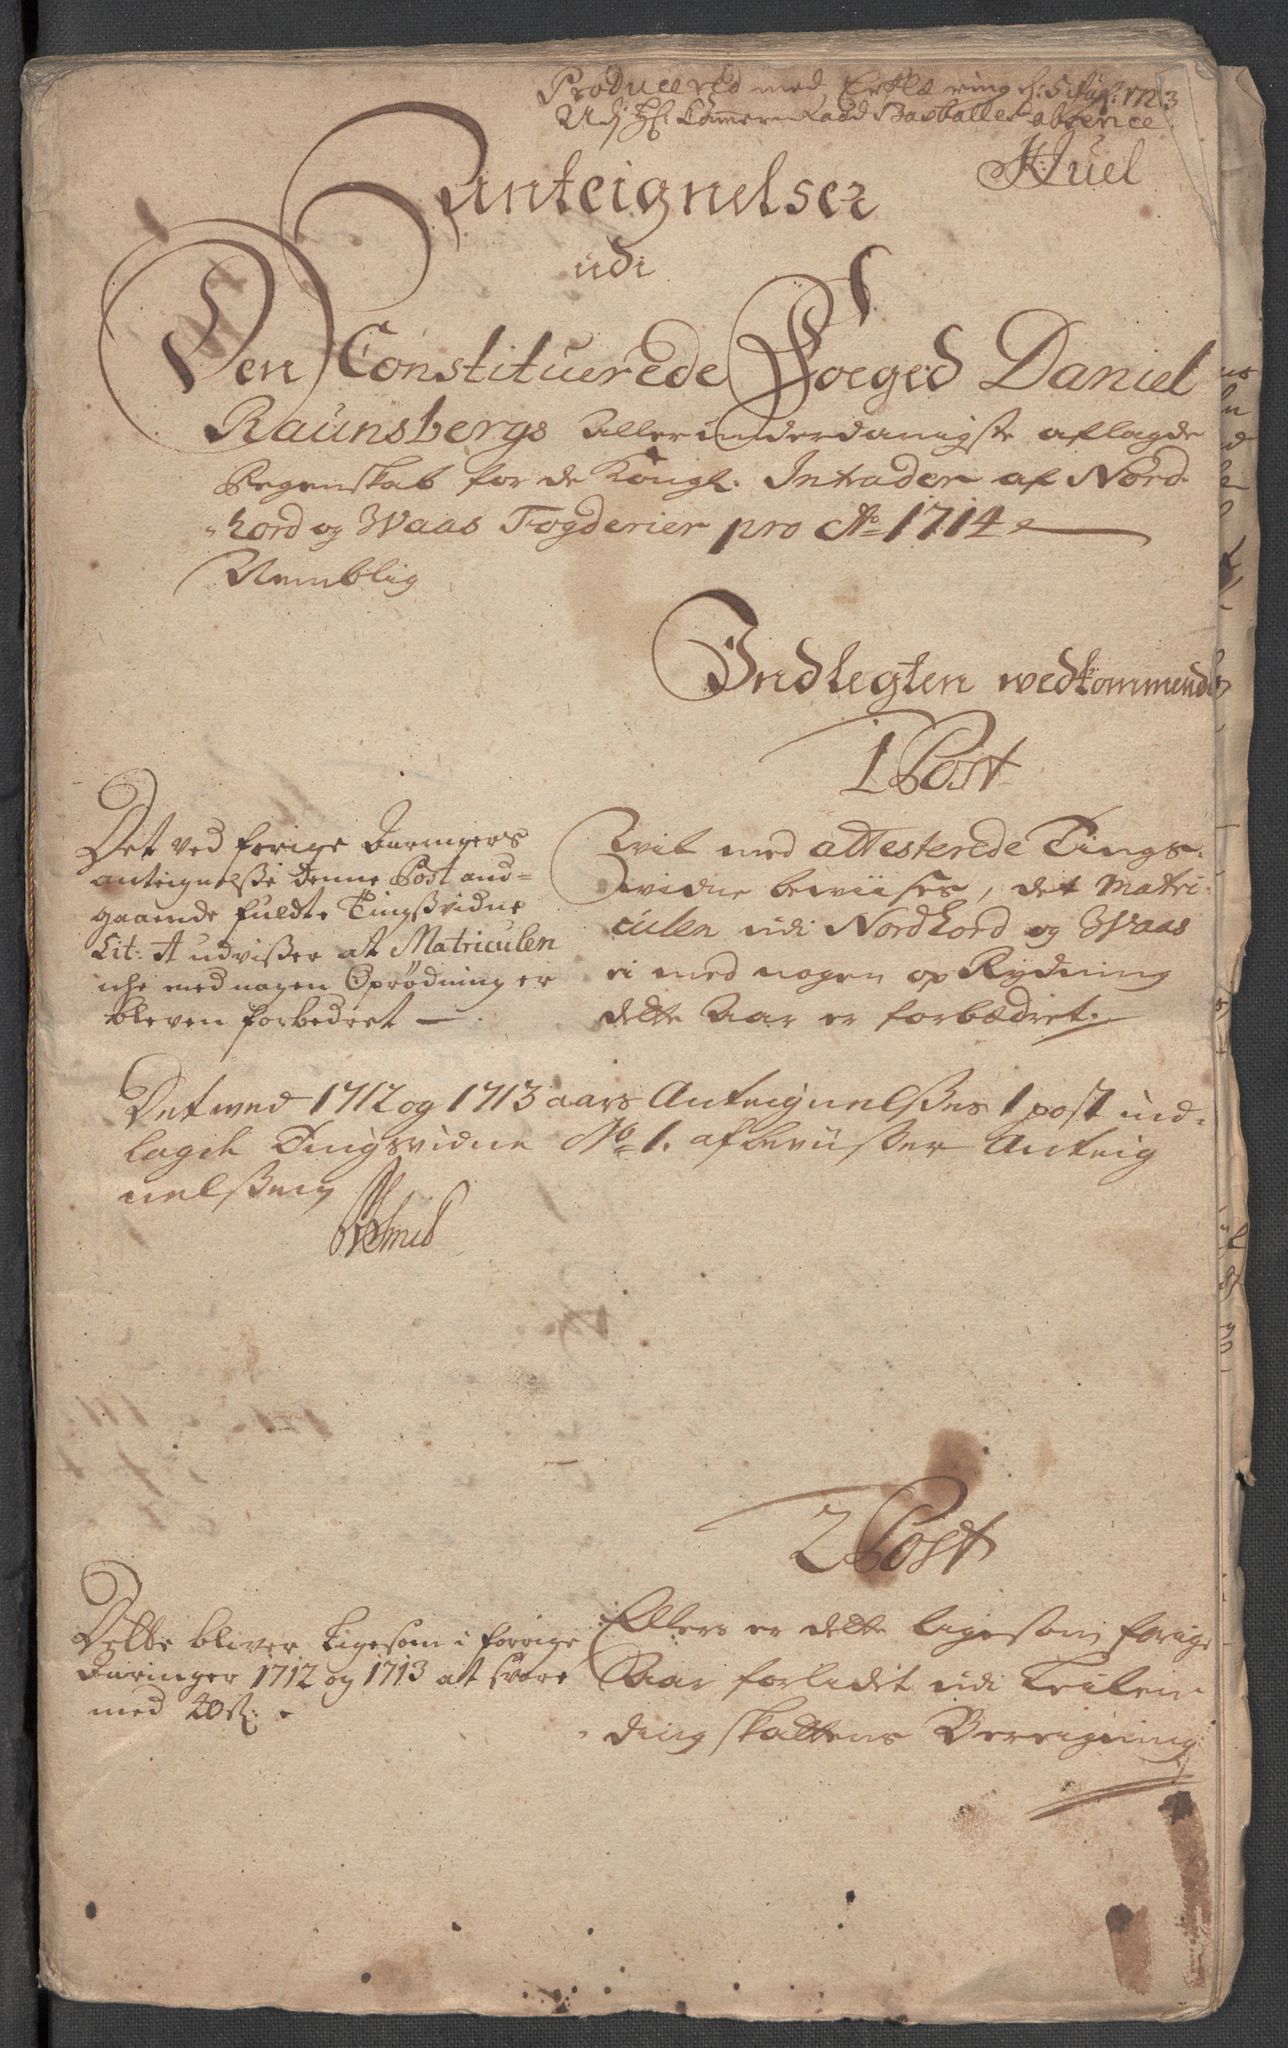 Produceret med Erklæring d: 5 Julj: 1723
Udj Hr: Cammer Raad Basballes absence
Juel
Anteignelser
udi
Den Constituerede Foeged Daniel
Raunsbergs Allerunderdanigste aflagde
Regenskab for de Kongl. Intrader af Nord-
hord og Waas Fogderier pro Ao 1714
Nemblig
Indtegten wedkommende
1 Post
Det ved forige Auringers
anteignelsse denne Post and-
gaaende fuldte Tingsvidne
Lit: A udvisser at Matriculen
iche med nogen Oprødning er
bleven forbedret —
Vil med attesterede Tings-
vidne beviises, det Matri-
culen udi Nordhord og Waas
ei med nogen op Rydning
dette Aar er forbædret.
Det wed 1712 og 1713 aars Anteignelsses 1 post ind-
lagde Tingsvidne No 1. afbeviisser Anteig
nelssen
Smid
2 Post
Dette bliver ligesom i forrige
Auringer 1712 og 1713 att svare
med
Ellers er dette ligesom forige
Aar forladt udi Leilen
dings skattens Beregning